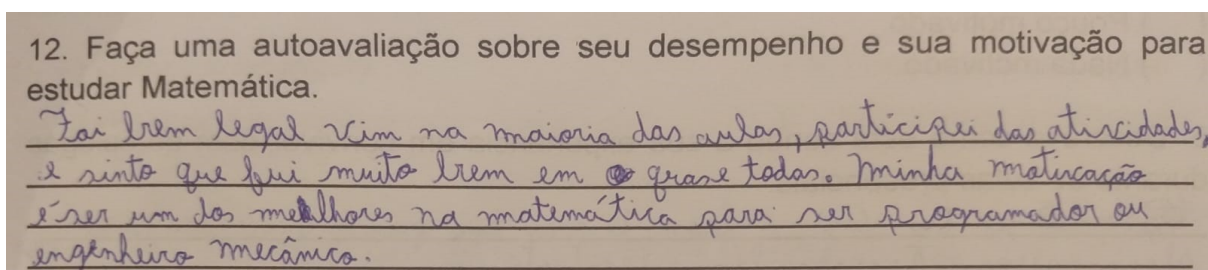 12. Faça uma autoavaliação sobre seu desempenho e sua motivação para
estudar Matemática.
Foi bem legal vim na maioria das aulas, participei das atividades,
e sinto que fui muito bem em quase todas. Minha motivação
é ser um dos melhores na matemática para ser programador ou
engenheiro mecânico.